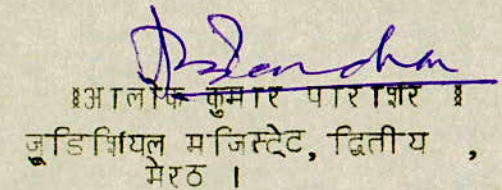 ॥आलोक कुमार पाराशर॥
जूडिशियल मजिस्ट्रेट, द्वितीय ,
मेरठ ।